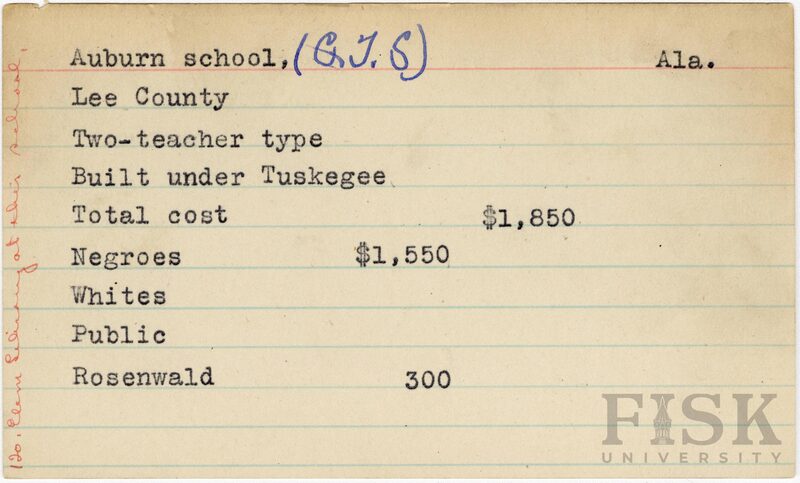 Auburn school, (G.T.S) Ala.
Lee County
Two-teacher type
Built under Tuskegee
Total cost $1,850
Negroes $1,550
Whites
Public
Rosenwald 300
120. Elem Library at this school.
FISK
UNIVERSITY